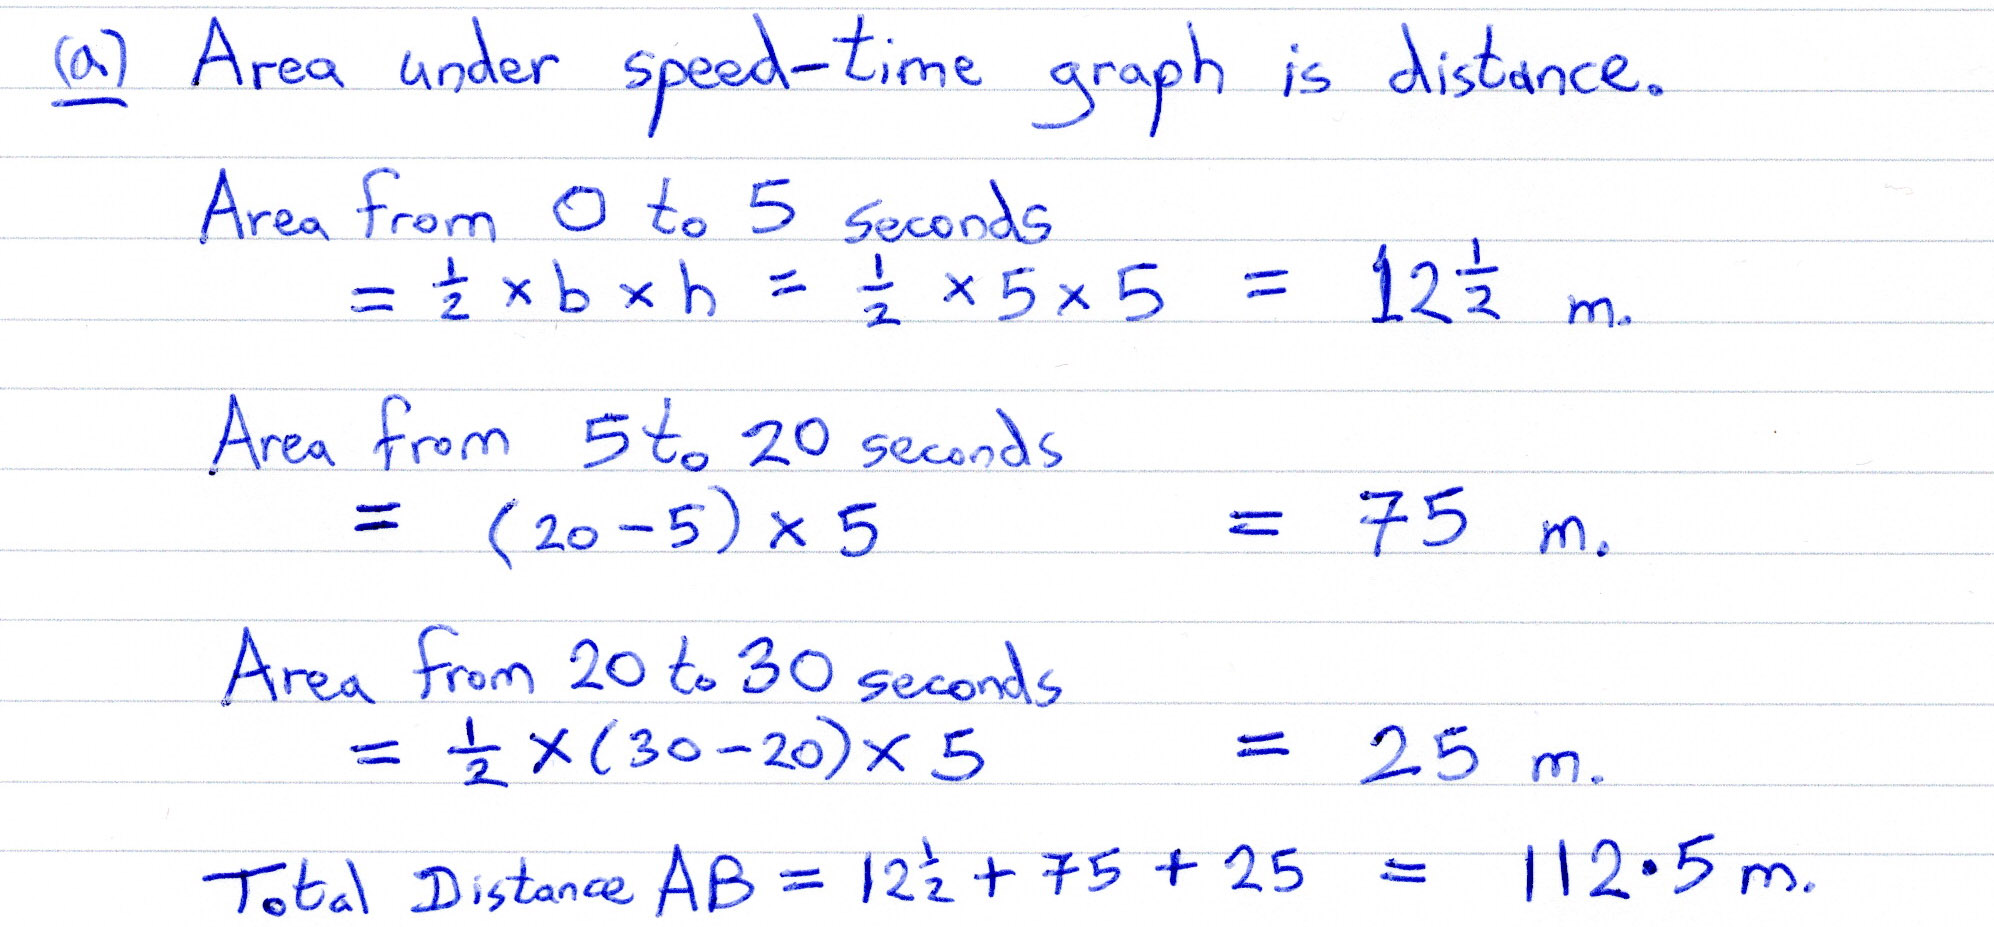 (a) Area under speed-time graph is distance.
Area from 0 to 5 seconds
= ½ × b × h = ½ × 5 × 5 = 12½ m.
Area from 5 to 20 seconds
= (20-5) × 5 = 75 m.
Area from 20 to 30 seconds
= ½ × (30-20) × 5 = 25 m.
Total Distance AB = 12½ + 75 + 25 = 112.5 m.